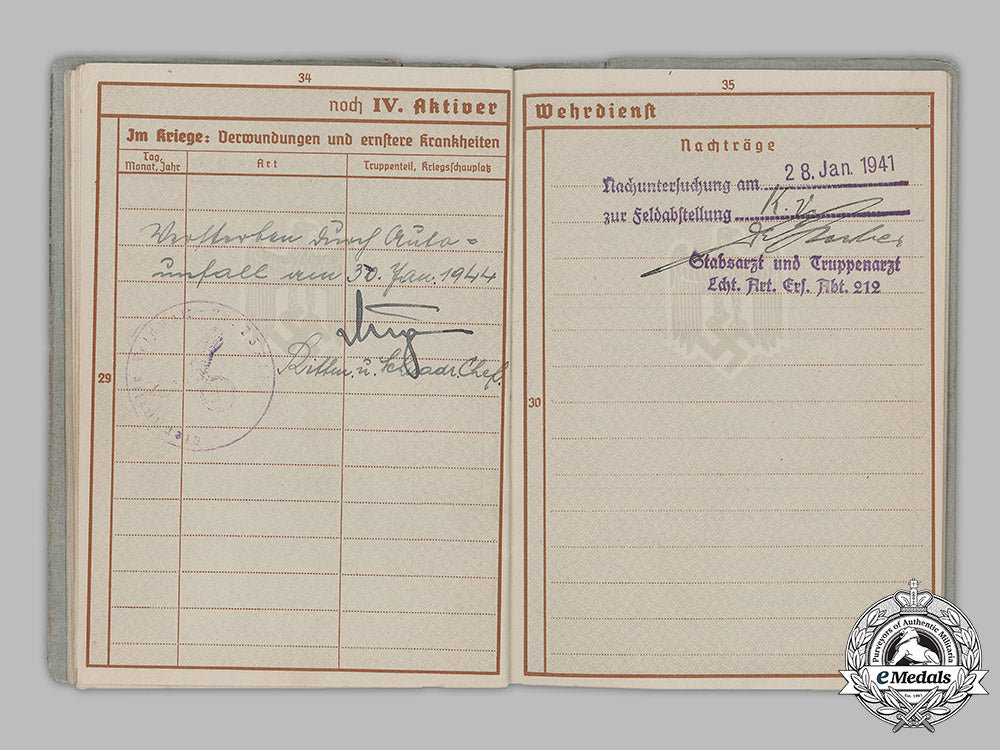 34
noch IV. Aktiver
Im Kriege: Verwundungen und ernstere Krankheiten
Tag, Monat, Jahr
Art
Truppenteil, Kriegsschauplatz
Verstorben durch Auto=
unfall am 30. Jan. 1944
Rittm. u. Schwadr. Chef.
29
35
Wehrdienst
Nachträge
Nachuntersuchung am 28. Jan. 1941
zur Feldabstellung K.V.
Stabsarzt und Truppenarzt
Lcht. Art. Ers. Abt. 212
30
Purveyors of Authentic Militaria
eMedals